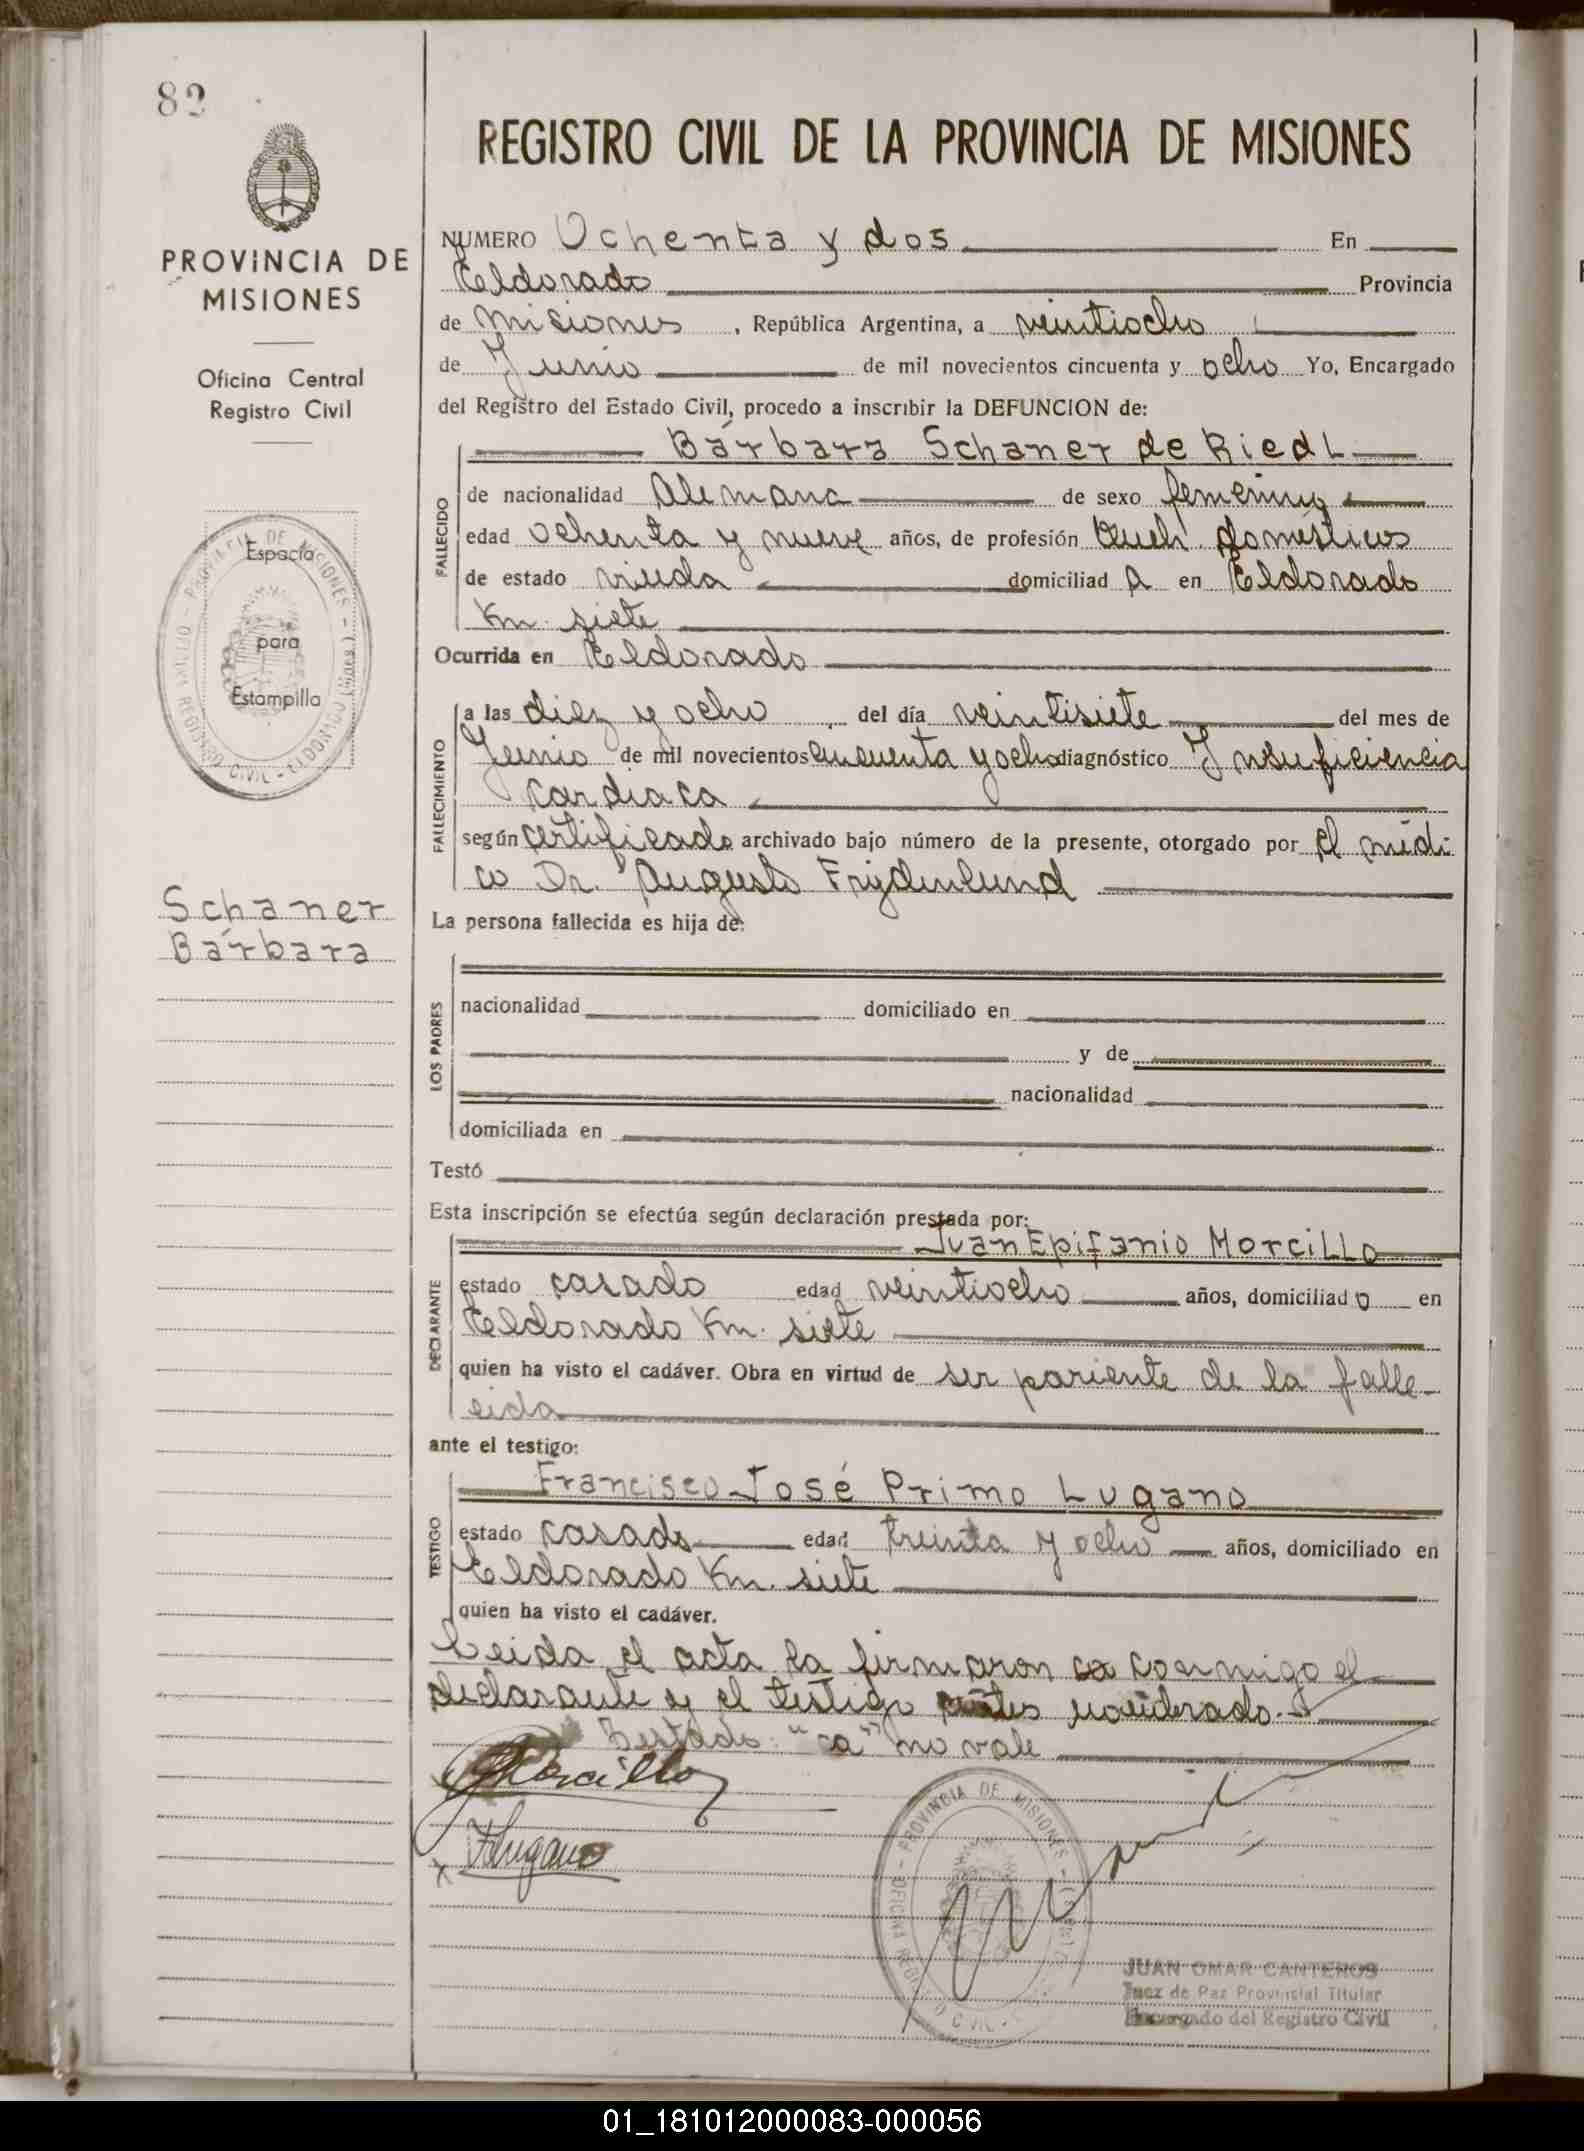 82
PROVINCIA DE
MISIONES
Oficina Central
Registro Civil
Espacio
para
Estampilla
Schaner
Bárbara
REGISTRO CIVIL DE LA PROVINCIA DE MISIONES
NUMERO Ochenta y dos En
Eldorado Provincia
de Misiones , República Argentina, a veintiocho
de Junio de mil novecientos cincuenta y ocho Yo, Encargado
del Registro del Estado Civil, procedo a inscribir la DEFUNCION de:
Bárbara Schaner de Riedl
FALLECIDO
de nacionalidad Alemana de sexo femenino
edad ochenta y nueve años, de profesión Queh. domésticos
de estado viuda domiciliad a en Eldorado
Km. siete
Ocurrida en Eldorado
FALLECIMIENTO
a las diez y ocho del día veintisiete del mes de
Junio de mil novecientos cincuenta y ocho diagnóstico Insuficiencia
cardiaca
según certificado archivado bajo número de la presente, otorgado por el médi-
co Dr. Augusto Frydenlund
La persona fallecida es hija de:
LOS PADRES
nacionalidad domiciliado en
y de
nacionalidad
domiciliada en
Testó
Esta inscripción se efectúa según declaración prestada por:
Juan Epifanio Morcillo
DECLARANTE
estado casado edad veintiocho años, domiciliad o en
Eldorado Km. siete
quien ha visto el cadáver. Obra en virtud de ser pariente de la falle-
cida
ante el testigo:
Francisco José Primo Lugano
TESTIGO
estado casado edad treinta y ocho años, domiciliado en
Eldorado Km. siete
quien ha visto el cadáver.
Leida el acta la firmaron ca conmigo el
declarante y el testigo
Testado: "ca" no vale
Morcillo
FLugano
PROVINCIA DE MISIONES
JUAN OMAR CANTEROS
Juez de Paz Provincial Titular
Encargado del Registro Civil
01_181012000083-000056